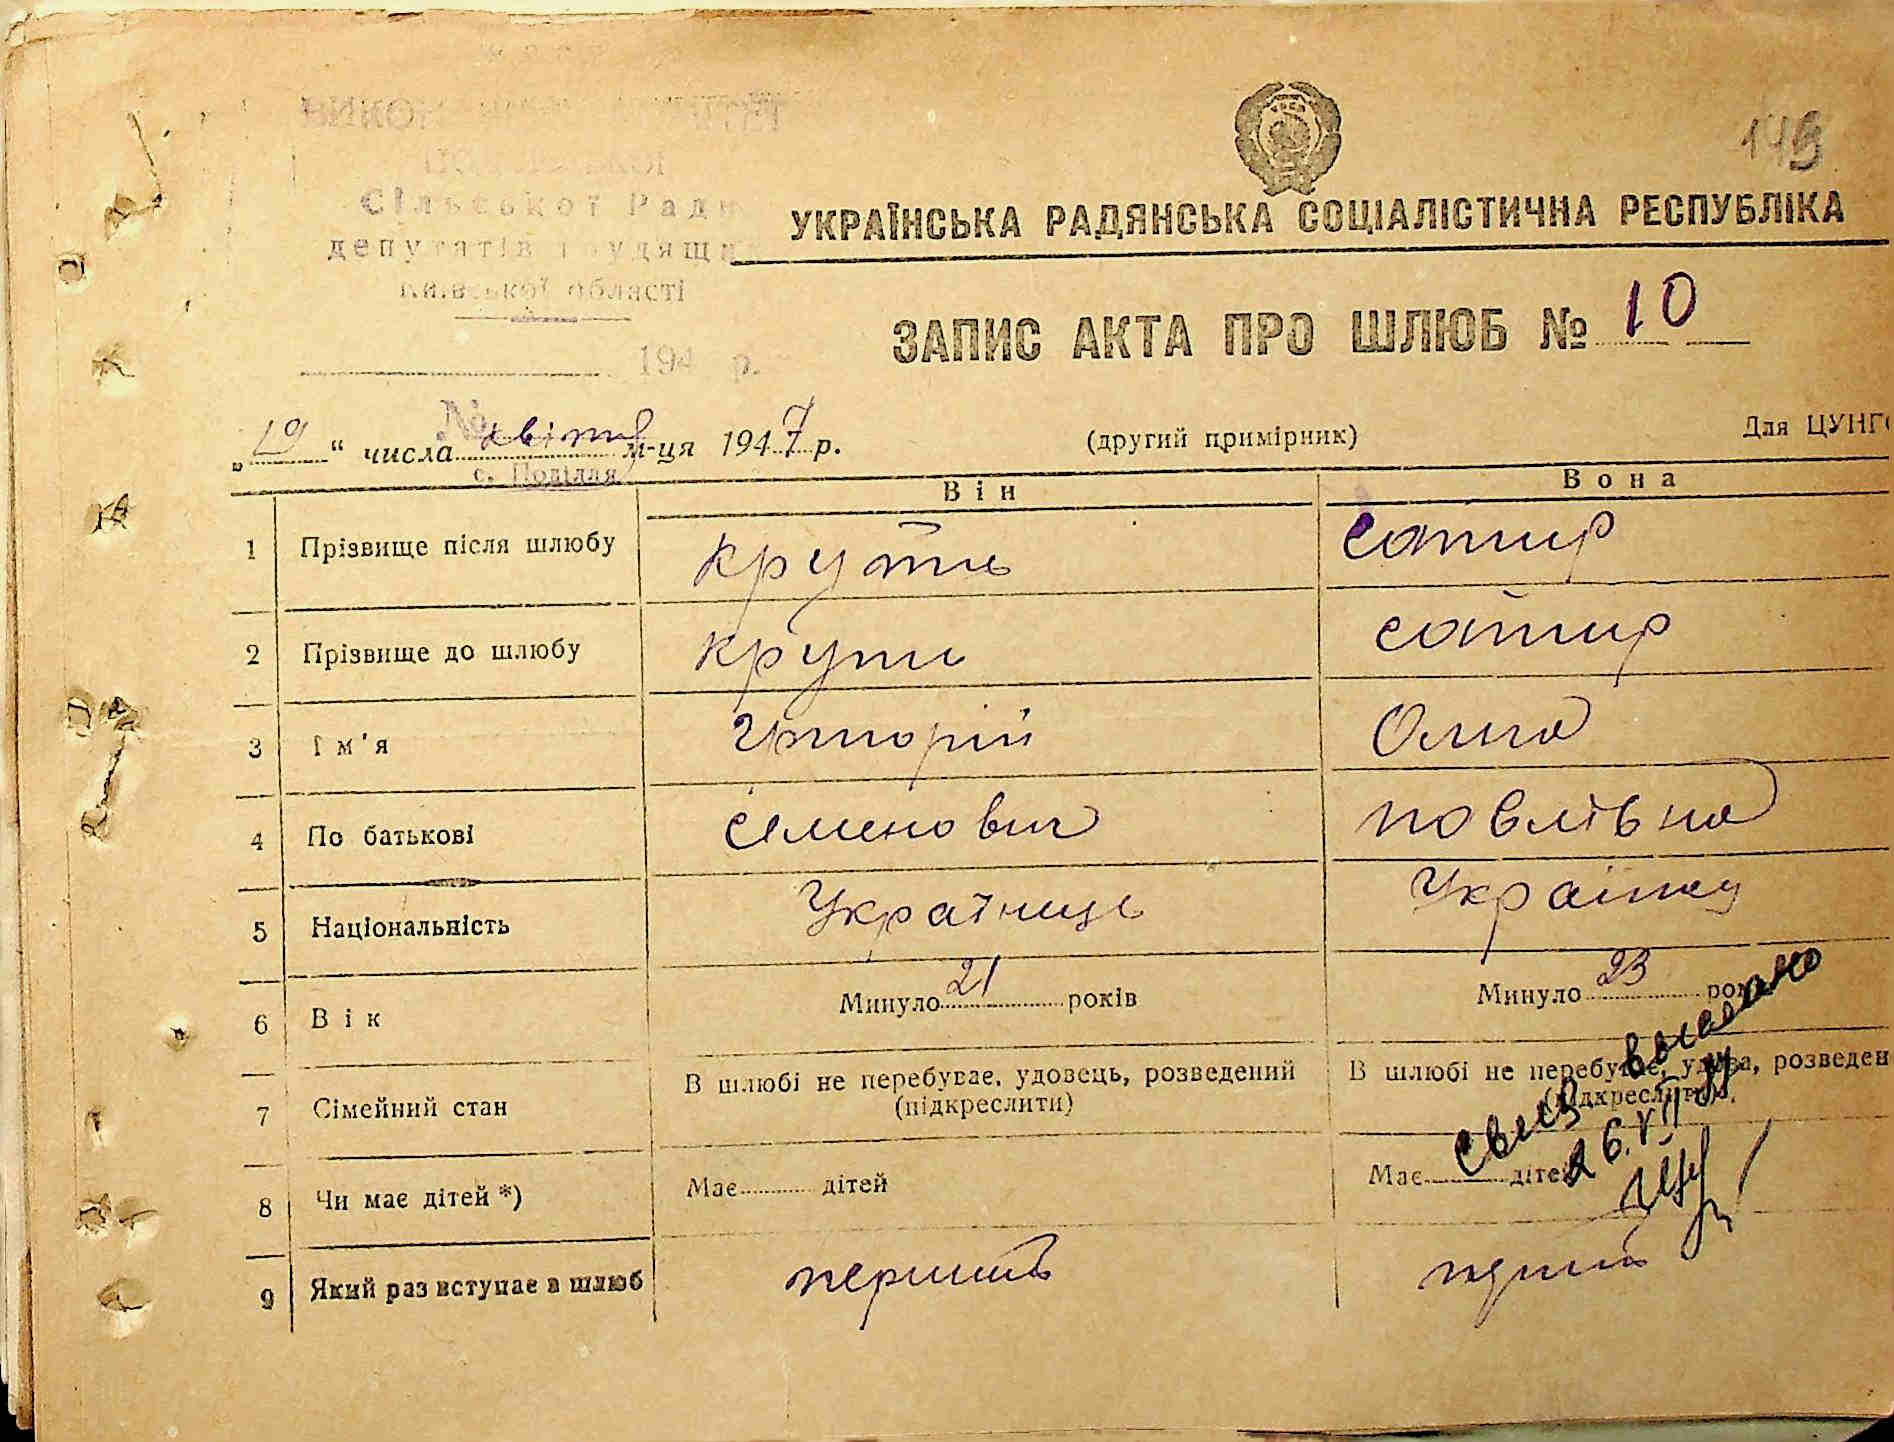 149
Сільської Ради
депутатів трудящих
Київської області
194 р.
№
с. Поділля
УКРАЇНСЬКА РАДЯНСЬКА СОЦІАЛІСТИЧНА РЕСПУБЛІКА
ЗАПИС АКТА ПРО ШЛЮБ № 10
„19“ числа квітня м-ця 1947 р. (другий примірник) Для ЦУНГО
Він Вона
1 Прізвище після шлюбу Круть Сатир
2 Прізвище до шлюбу Круть Сатир
3 Ім'я Григорій Ольга
4 По батькові Семенович Павлівна
5 Національність Українець Українка
6 Вік Минуло 21 років Минуло 23 років
7 Сімейний стан В шлюбі не перебуває, удовець, розведений В шлюбі не перебуває, удова, розведен
(підкреслити) (підкреслити)
8 Чи має дітей *) Має дітей Має дітей
9 Який раз вступає в шлюб перший перший
26.VII